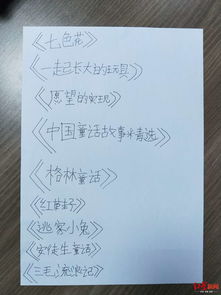 《七色花》
《一起长大的玩具》
《愿望的实现》
《中国童话故事精选》
《格林童话》
《红草好》
《逃家小兔》
《安徒生童话》
《三毛流浪记》